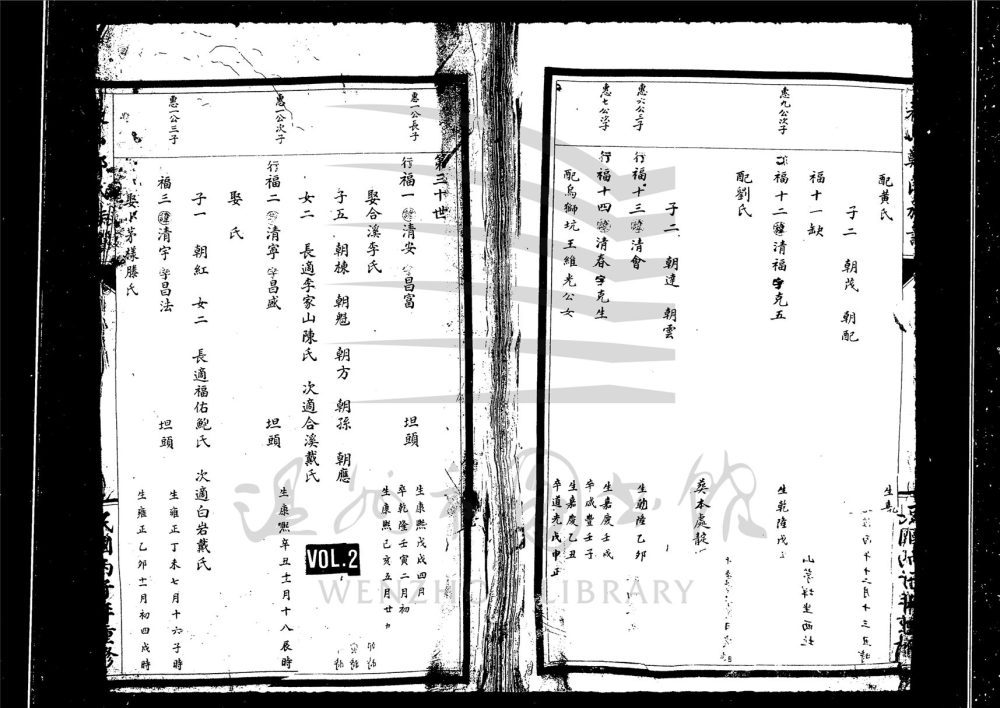 配黃氏
子二 朝茂 朝配
福十一缺
惠九公次子
福十二諱清福字克五
生乾隆戊
配劉氏
葬本處
子二 朝達 朝雲
惠六公三子
行福十三諱清會
生乾隆乙卯
惠七公次子
行福十四諱清春字克生
生嘉慶壬戌
卒咸豐壬子
配烏獅坑王維光公女
生嘉慶乙丑
卒道光戊申正
第三十世
惠一公長子
行福一諱清安字昌富
坦頭
生康熙戊戌四月
卒乾隆壬寅二月初
娶合溪李氏
生康熙己亥五月廿
子五 朝棟 朝魁 朝方 朝孫 朝應
女二 長適李家山陳氏 次適合溪戴氏
惠一公次子
行福二諱清寧字昌盛
坦頭
生康熙辛丑十一月十八辰時
娶 氏
子一 朝紅 女二 長適福佑鮑氏 次適白岩戴氏
惠一公三子
福三諱清宇字昌法
坦頭
生雍正丁未七月十六子時
娶茅樣滕氏
生雍正乙卯十一月初四戌時
民國丙子年重修
VOL.2
溫州圖書館
WENZHOU LIBRARY